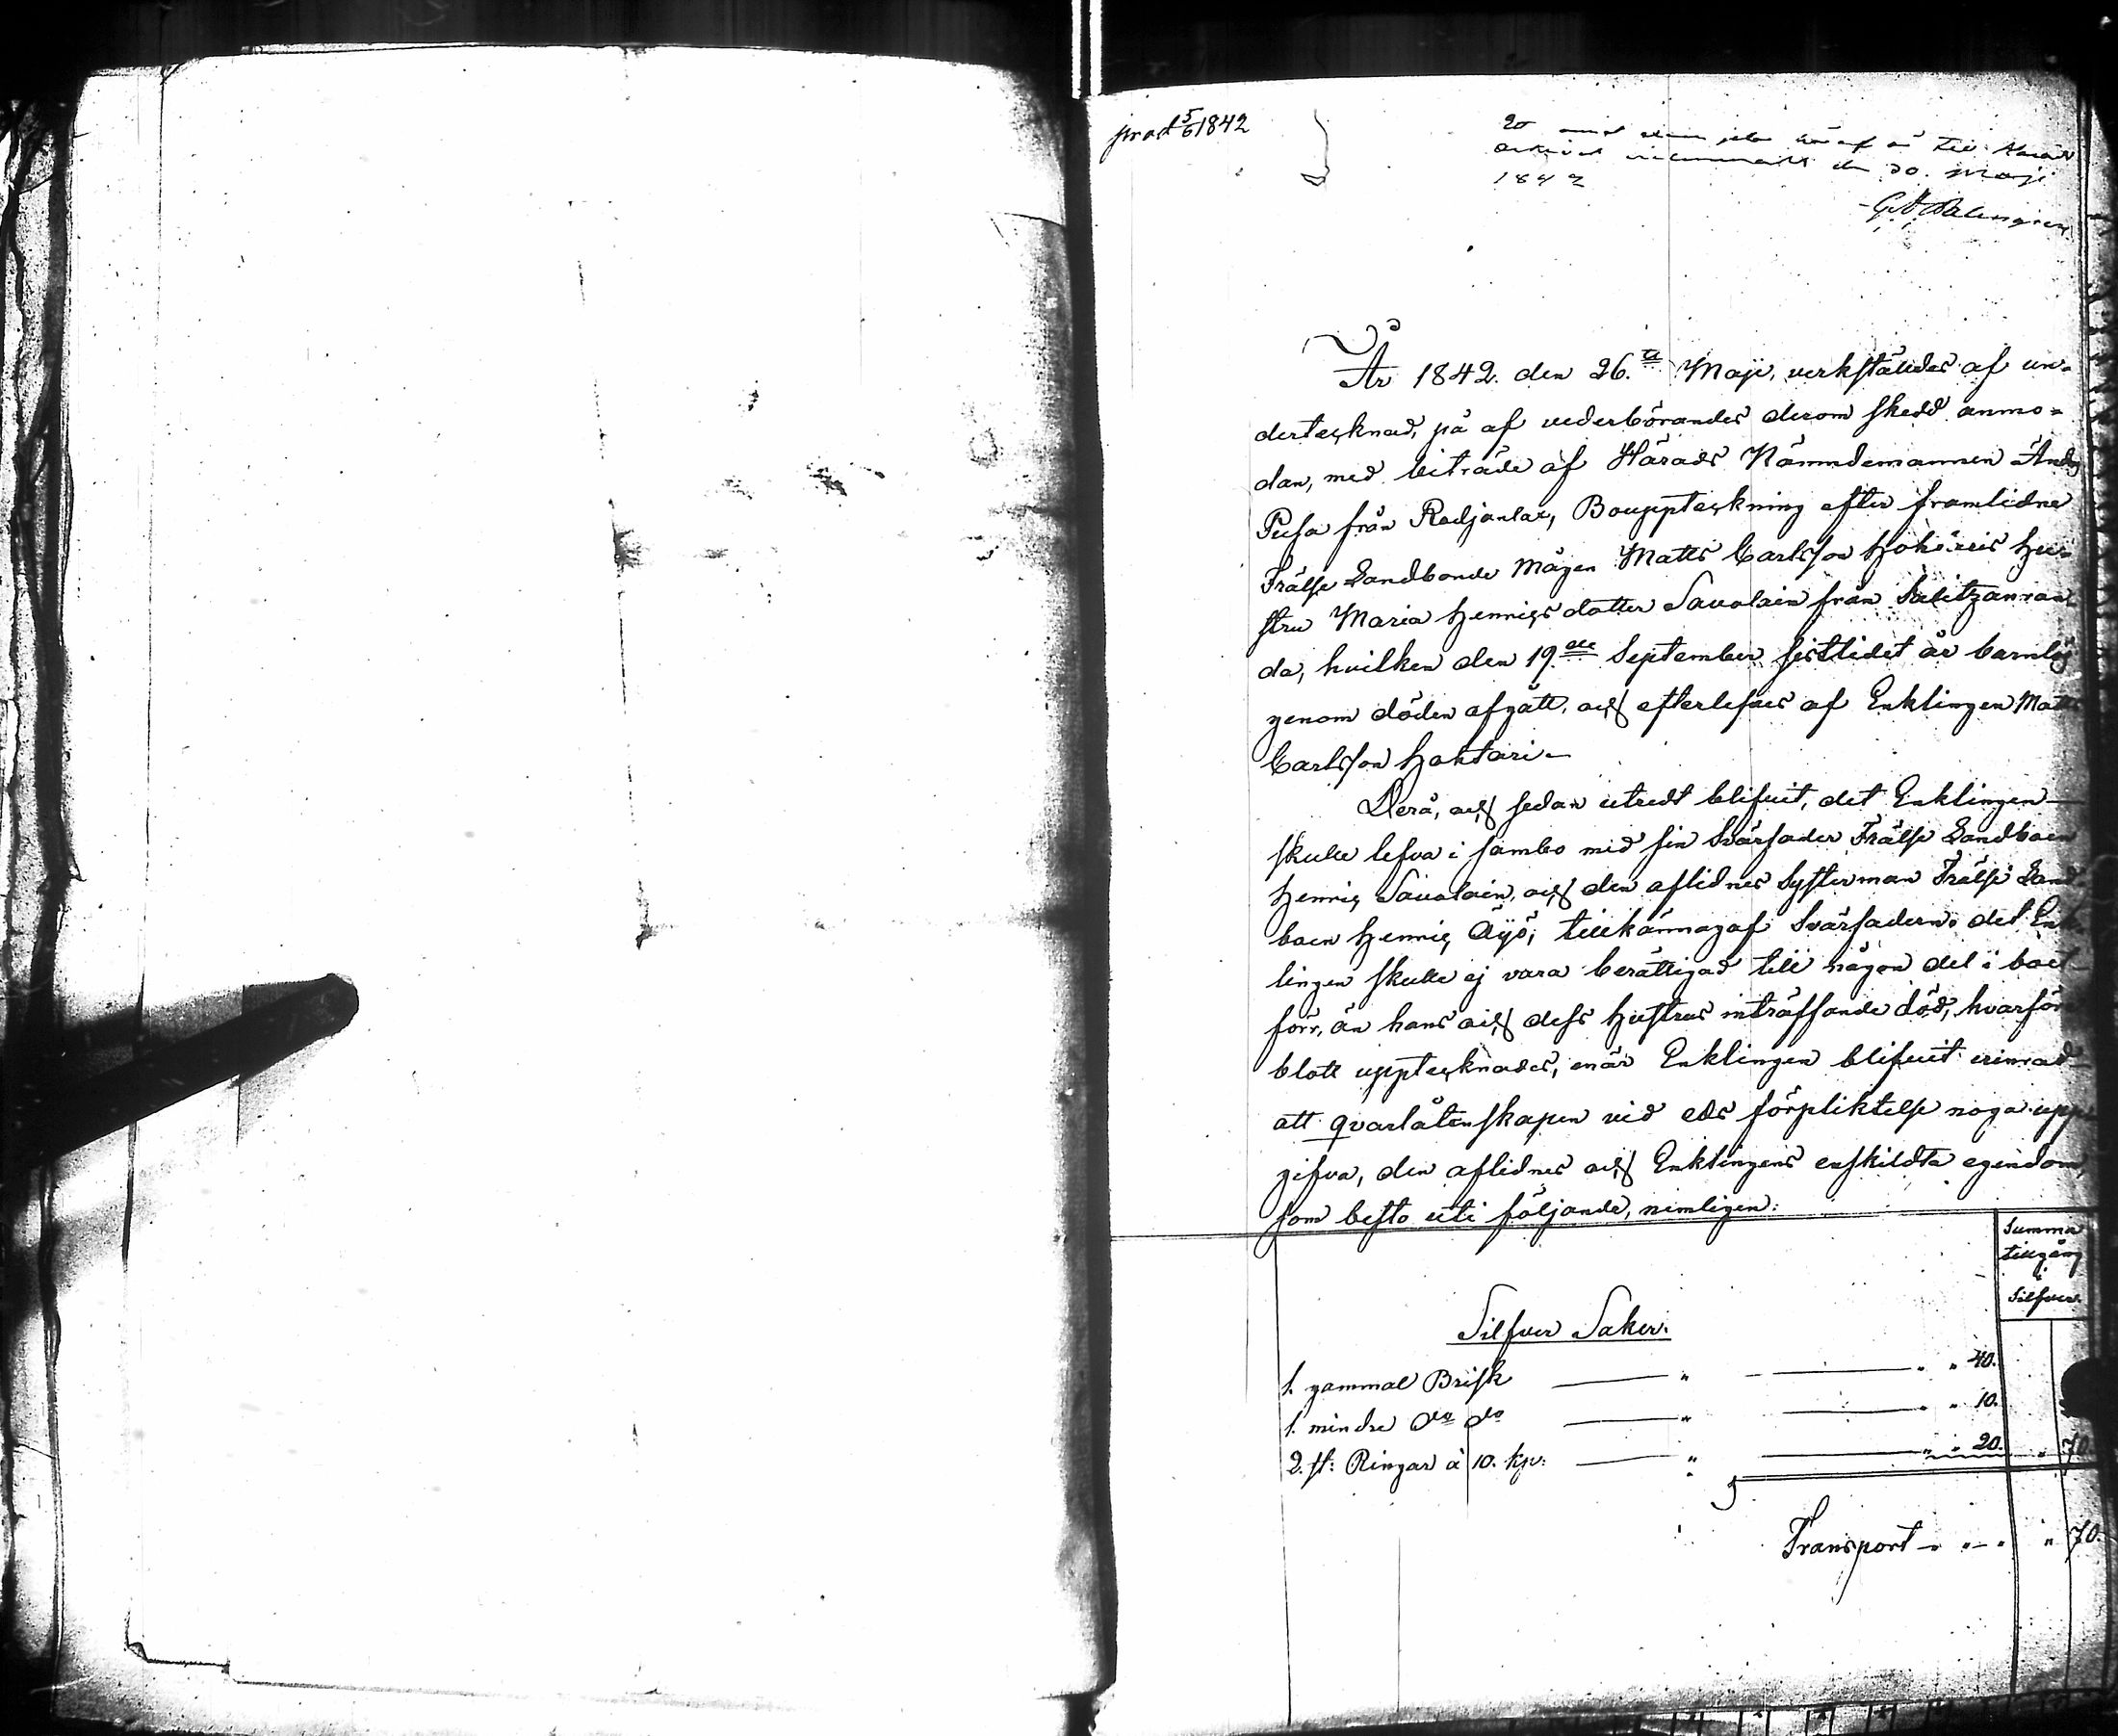 prod 5/6 1842
den 30. Maji
1842
År 1842. den 26.te Maji, verkställdes af un-
dertecknad, på af vederbörandes derom skedd anmo-
dan, med biträde af Härads Nämndemannen And:
Pusa från Rodjanlax, Bouppteckning efter framlidne
Frälse Landbonde Mågen Matts Carlsson Hus-
tru Maria Henricsdotter Savolain från
da, hvilken den 19.de September sistlidet år barnlös
genom döden afgått, och efterlefves af Enklingen Matts
Carlsson Hoktari-
Derå, och sedan utredt blifvit, det Enklingen
skulle lefva i sambo med sin Svärfader Frälse Landboen
Henric Savolain, och den aflidnes Systerman Frälse Land-
boen Henric Äijö, tillkännagaf Svärfadern, det Enk-
lingen skulle ej vara berättigad till någon del i boet
förr, än hans och dess Hustrus inträffande död, hvarföre
blott upptecknades, enär Enklingen blifvit erinrad
att qvarlåtenskapen vid eds förpliktelse noga upp-
gifva, den aflidnes och Enklingens enskildta egendom,
som besto uti följande, nimligen:
Summa
tillgång
i
Silfver.
Silfver Saker.
1. gammal Brisk — " — " " 40.
1. mindre do do — " — " " 10.
2. st: Ringar à 10. kp: — " — " " 20. " 70.
Transport - " - " " 70.